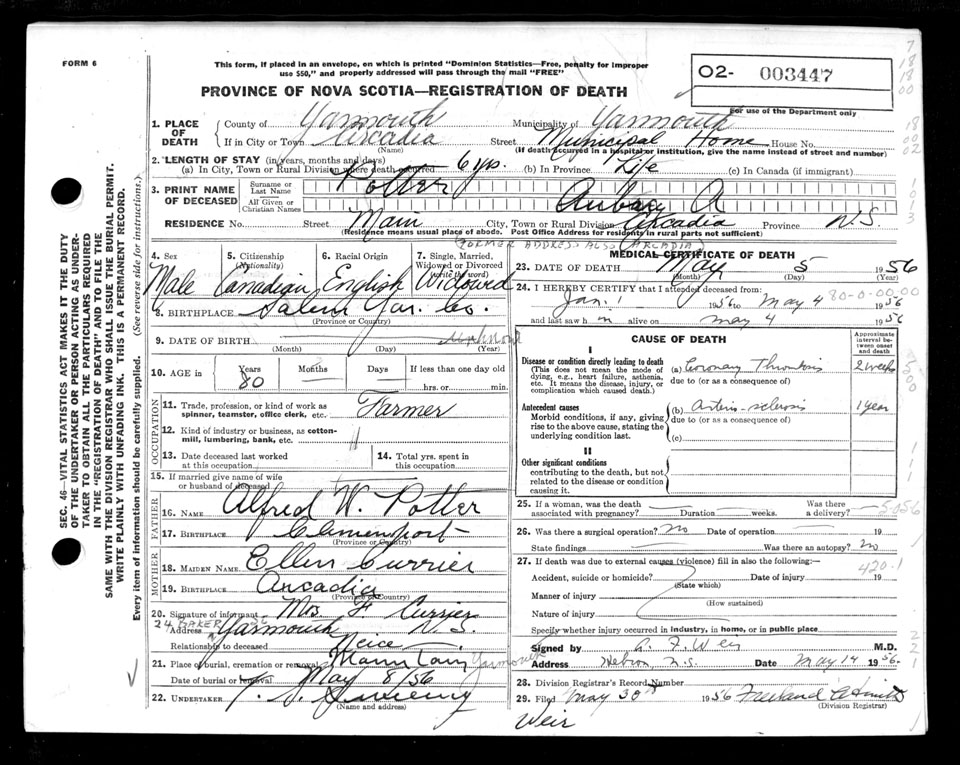 FORM 6
This form, if placed in an envelope, on which is printed "Dominion Statistics—Free, penalty for improper
use $50," and properly addressed will pass through the mail "FREE"
O2- 003447
For use of the Department only
PROVINCE OF NOVA SCOTIA—REGISTRATION OF DEATH
1. PLACE OF DEATH
County of Yarmouth Municipality of Yarmouth
If in City or Town Arcadia Street Municipal Home House No.
(Name) (If death occurred in a hospital or institution, give the name instead of street and number)
2. LENGTH OF STAY (in years, months and days)
(a) In City, Town or Rural Division where death occurred 6 yrs. (b) In Province Life (c) In Canada (if immigrant)
3. PRINT NAME OF DECEASED
Surname or Last Name Potter
All Given or Christian Names Aubrey A
RESIDENCE No. Street Main City, Town or Rural Division Arcadia Province N.S.
(Residence means usual place of abode. Post Office Address for residents in rural parts not sufficient)
(FORMER ADDRESS ALSO ARCADIA)
4. Sex Male
5. Citizenship (Nationality) Canadian
6. Racial Origin English
7. Single, Married, Widowed or Divorced (write the word) Widowed
8. BIRTHPLACE Salem Yar. Co.
(Province or Country)
9. DATE OF BIRTH unknown
(Month) (Day) (Year)
10. AGE in Years 80 Months — Days — If less than one day old
hrs. or min.
OCCUPATION
11. Trade, profession, or kind of work as
spinner, teamster, office clerk, etc. Farmer
12. Kind of industry or business, as cotton-
mill, lumbering, bank, etc. "
13. Date deceased last worked
at this occupation
14. Total yrs. spent in
this occupation
15. If married give name of wife
or husband of deceased
FATHER
16. NAME Alfred W. Potter
17. BIRTHPLACE Clementsport
(Province or Country)
MOTHER
18. MAIDEN NAME Ellen Currier
19. BIRTHPLACE Arcadia
(Province or Country)
20. Signature of informant Mrs F Currier
24 BAKER ST
Address Yarmouth N.S.
Relationship to deceased Neice
21. Place of burial, cremation or removal Yarmouth
Date of burial or removal May 8/56
22. UNDERTAKER V. S. Sweeny
(Name and address)
MEDICAL CERTIFICATE OF DEATH
23. DATE OF DEATH May 5 1956
(Month) (Day) (Year)
80-0-00-00
24. I HEREBY CERTIFY that I attended deceased from:
Jan. 1 1956 to May 4 1956
and last saw h im alive on May 4 1956
CAUSE OF DEATH
Approximate interval between onset and death
I
Disease or condition directly leading to death
(This does not mean the mode of dying, e.g., heart failure, asthenia, etc. It means the disease, injury, or complication which caused death.)
(a) Coronary Thrombosis 2 weeks
due to (or as a consequence of)
Antecedent causes
Morbid conditions, if any, giving rise to the above cause, stating the underlying condition last.
(b) Arterio-sclerosis 1 year
due to (or as a consequence of)
(c)
II
Other significant conditions
contributing to the death, but not related to the disease or condition causing it.
25. If a woman, was the death
associated with pregnancy? Duration weeks. Was there a delivery?
5056
26. Was there a surgical operation? no Date of operation 19
State findings Was there an autopsy? no
27. If death was due to external causes (violence) fill in also the following:
420.1
Accident, suicide or homicide? Date of injury 19
(State which)
Manner of injury
(How sustained)
Nature of injury
Specify whether injury occurred in industry, in home, or in public place
Signed by A. F. Weir M.D.
Address Hebron, N.S. Date May 14 1956.
28. Division Registrar's Record Number
29. Filed May 30th 1956
(Division Registrar)
Weir
SEC. 46—VITAL STATISTICS ACT MAKES IT THE DUTY
OF THE UNDERTAKER OR PERSON ACTING AS UNDER-
TAKER TO OBTAIN ALL THE PARTICULARS REQUIRED
IN THE "REGISTRATION OF DEATH" AND TO FILE THE
SAME WITH THE DIVISION REGISTRAR WHO SHALL ISSUE THE BURIAL PERMIT.
WRITE PLAINLY WITH UNFADING INK. THIS IS A PERMANENT RECORD.
Every item of information should be carefully supplied. (See reverse side for instructions.)